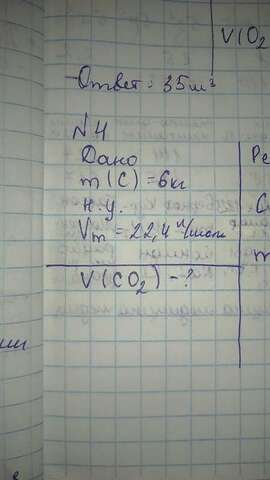 V(O₂
Ответ: 35м³
№4
Дано
m(C)=6кг
н.у.
Vm = 22,4 л/моль
V(CO₂) - ?
Ре
C
m